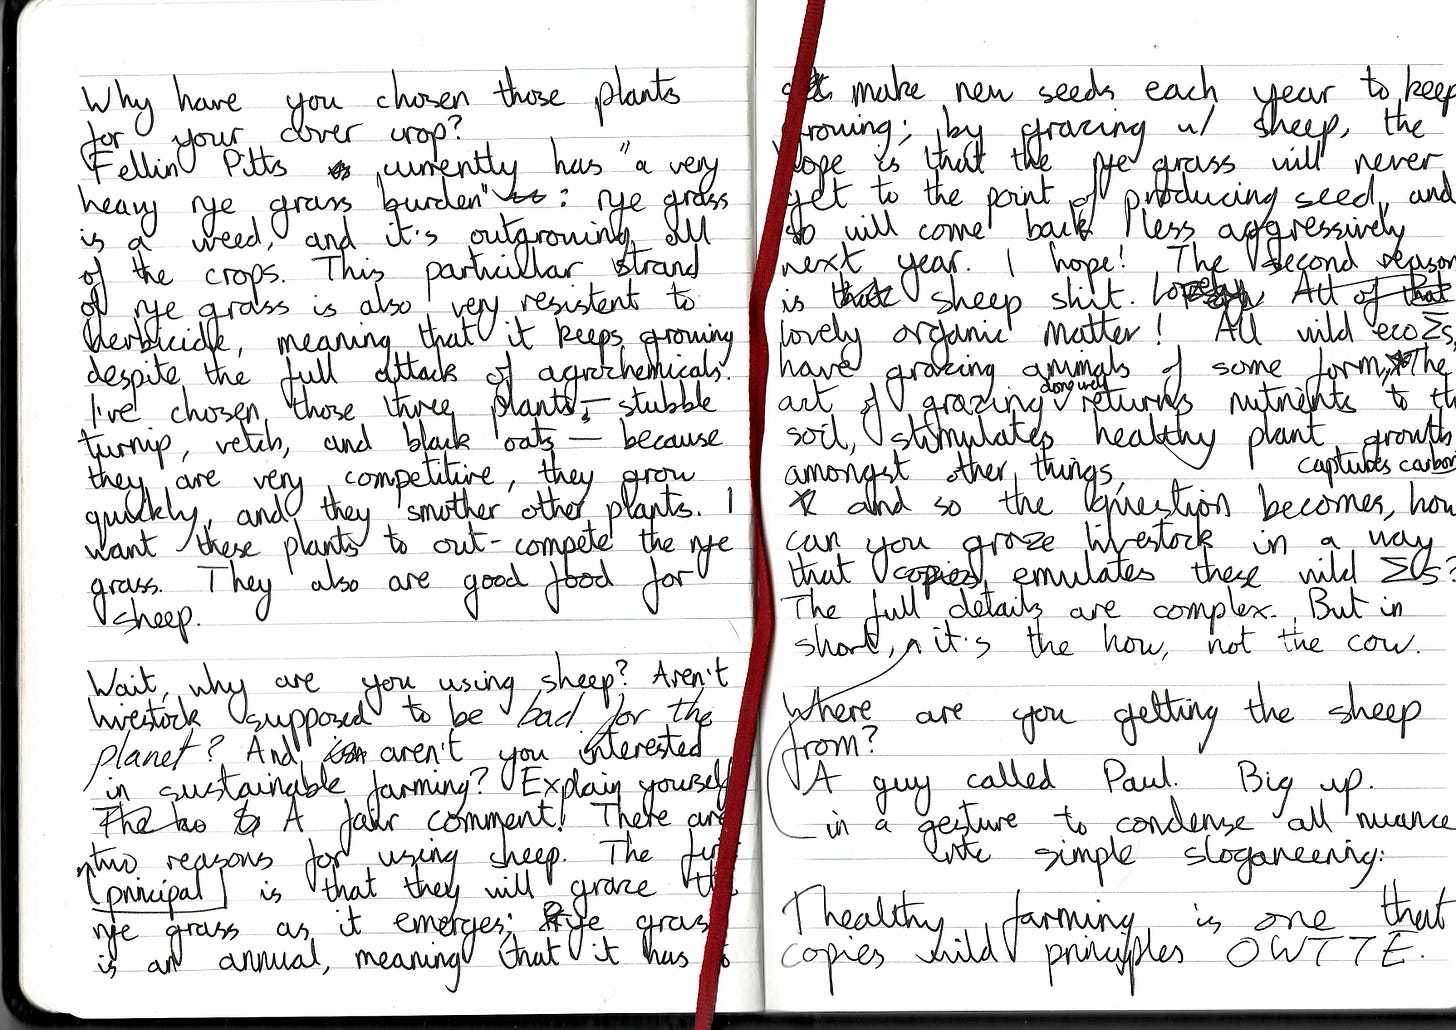 Why have you chosen those plants
for your cover crop?
Fellin Pitts currently has "a very
heavy rye grass burden": rye grass
is a weed, and it's outgrowing all
of the crops. This particular strand
of rye grass is also very resistent to
herbicide, meaning that it keeps growing
despite the full attack of agrochemicals.
I've chosen those three plants — stubble
turnip, vetch, and black oats — because
they are very competitive, they grow
quickly, and they smother other plants. I
want these plants to out-compete the rye
grass. They also are good food for
sheep.
Wait, why are you using sheep? Aren't
livestock supposed to be bad for the
planet? And aren't you interested
in sustainable farming? Explain yourself
A fair comment! There are
two reasons for using sheep. The
principal is that they will graze
rye grass as it emerges; Rye grass
is an annual, meaning that it has
make new seeds each year to keep
growing; by grazing w/ sheep, the
hope is that the rye grass will never
get to the point of producing seed, and
so will come back less aggressively
next year. I hope! The second reason
is sheep shit. All of that
lovely organic matter! All wild ecoΣs,
have grazing animals of some form, The
art of grazing done well returns nutrients to th
soil, stimulates healthy plant growth
captures carbon
amongst other things,
* and so the question becomes, how
can you graze livestock in a way
that copies, emulates these wild Σs?
The full details are complex. But in
short, it's the how, not the cow.
Where are you getting the sheep
from?
A guy called Paul. Big up.
in a gesture to condense all nuance
into simple sloganeering:
healthy farming is one that
copies wild principles OWTTE.